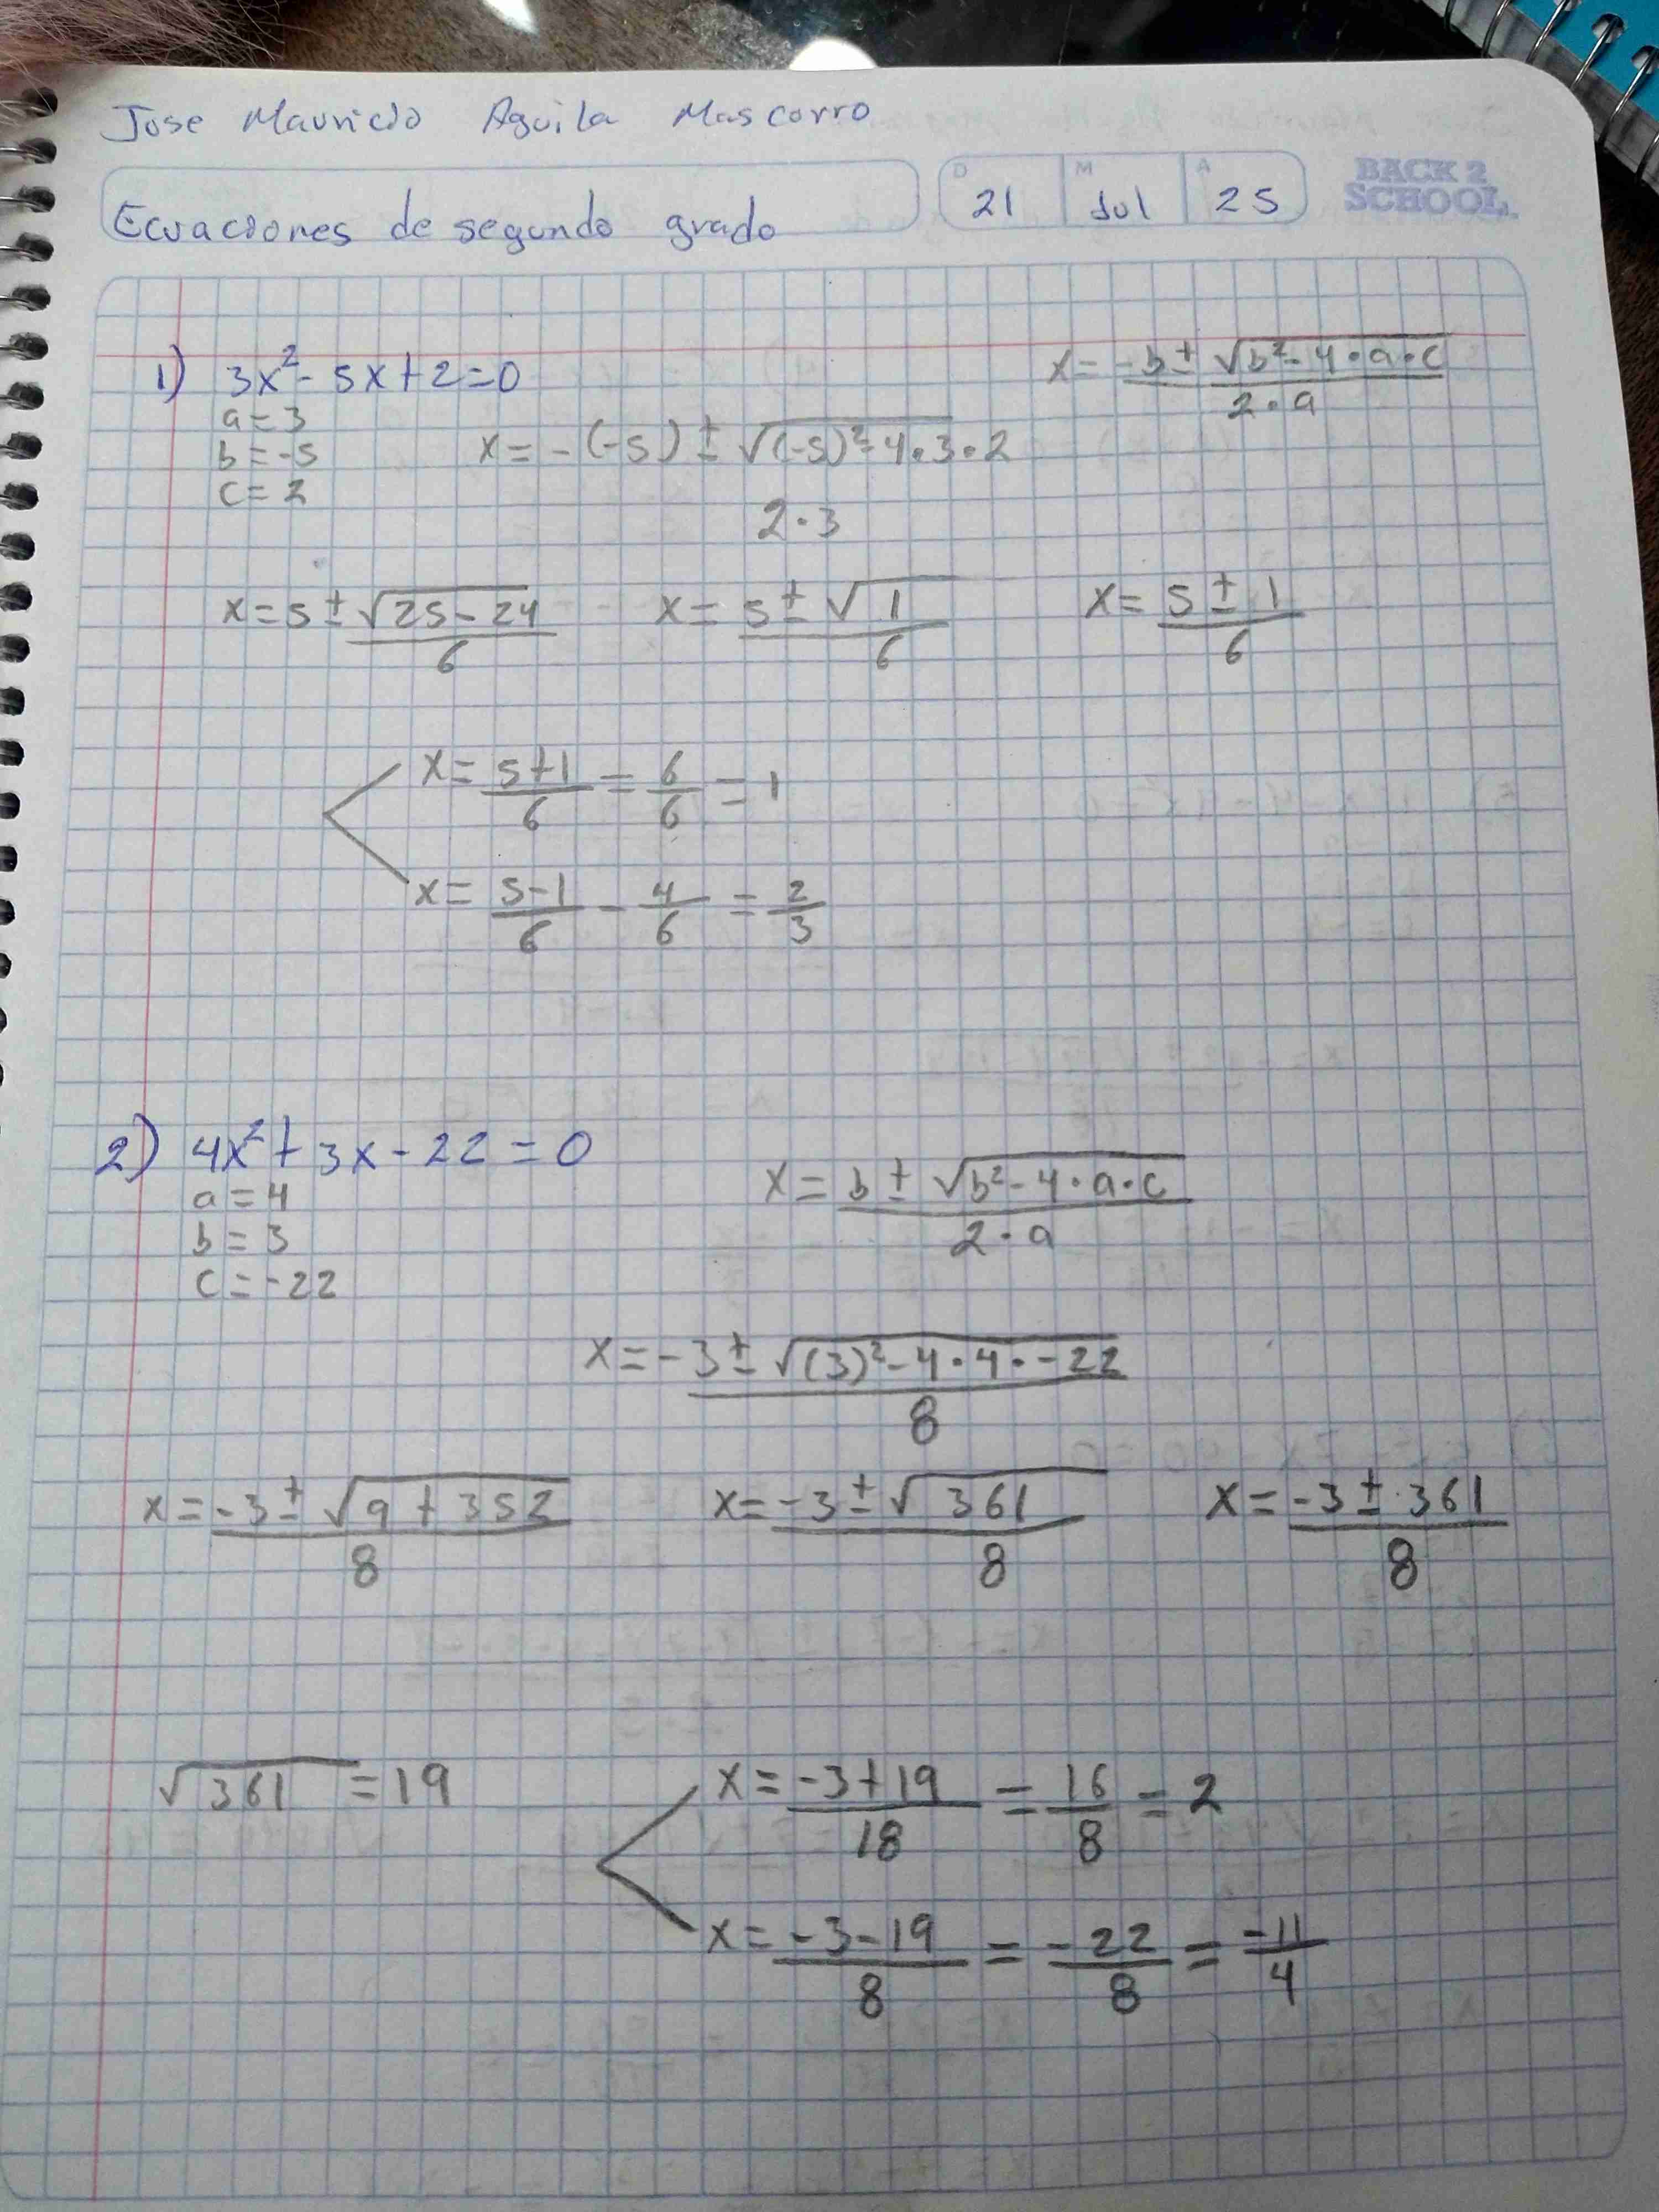 Jose Mauricio Aguila Mascorro
Ecuaciones de segundo grado
D 21 M Jul A 25
BACK 2 SCHOOL
1) 3x²- 5x+2=0
x= -b ± √b²-4•a•c / 2•a
a=3
b=-5
c=2
x= -(-5) ± √(-5)²-4•3•2 / 2•3
x=5 ± √25-24 / 6
x= 5 ± √1 / 6
x= 5 ± 1 / 6
x= 5+1 / 6 = 6/6 = 1
x= 5-1 / 6 - 4/6 = 2/3
2) 4x²+3x-22=0
a=4
b=3
c=-22
x= b ± √b²-4•a•c / 2•a
x=-3 ± √(3)²-4•4•-22 / 8
x=-3 ± √9+352 / 8
x=-3 ± √361 / 8
x=-3 ± 361 / 8
√361 =19
x= -3+19 / 18 = 16/8 = 2
x= -3-19 / 8 = -22/8 = -11/4